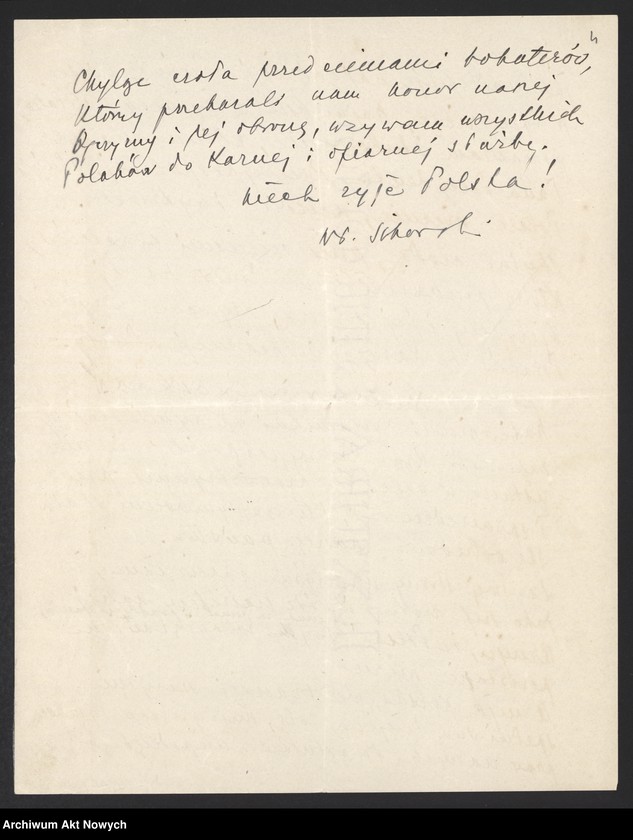 4
Chyląc czoła przed cieniami bohaterów,
którzy przekazali nam honor naszej
Ojczyzny i jej obronę, wzywam wszystkich
Polaków do karnej i ofiarnej służby.
Niech żyje Polska!
Wł. Sikorski
Archiwum Akt Nowych